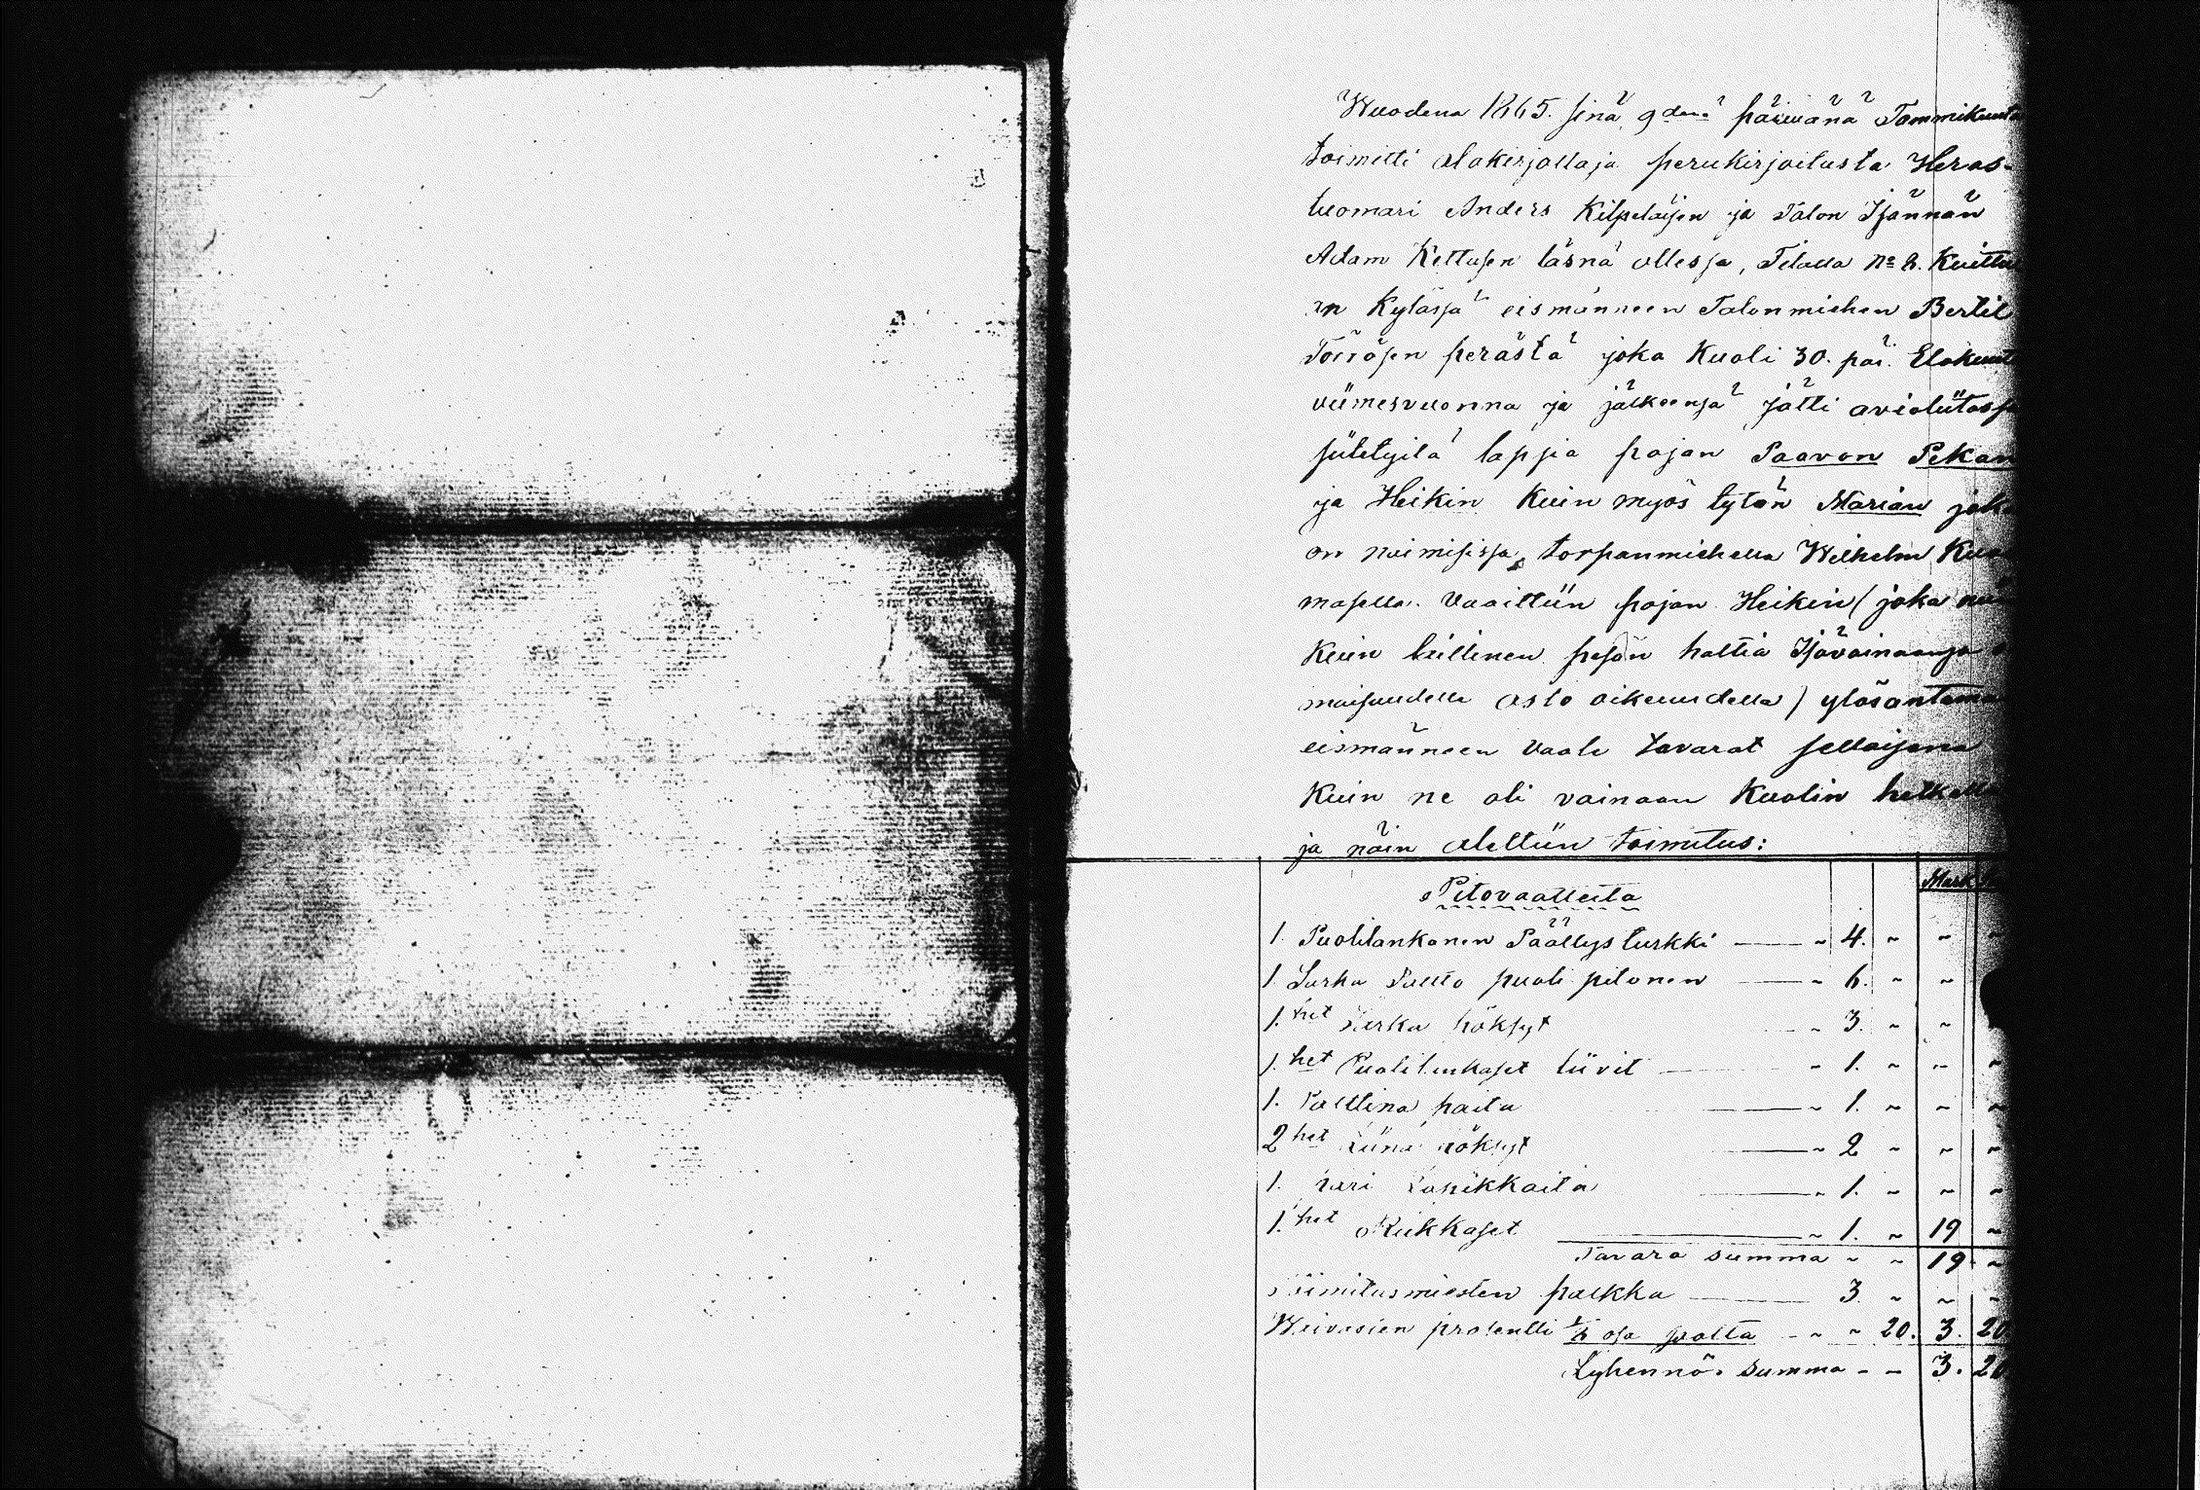 Wuodena 1865. sinä 9denä päiwänä Tammikuuta
toimitti alakirjoittaja perukirjoitusta Heras-
tuomari Anders Kilpeläisen ja Talon Isännän
Adam Kettusen läsnä ollessa, Tilalla No 2. Kuittu
an Kylässä eismänneen Talonmiehen Bertil
Törrösen perästä joka Kuoli 30. päi. Elokuuta
viimesvuonna ja jälkeensä jätti aviolütossa
sütetyitä lapsia pojan Paavon Pekan
ja Heikin Kuin myös tytön Marian joka
on naimisissa torpanmiehella Wilhelm
masella. Vaaittiin pojan Heikin (joka nüt
Kuin laillinen pesän haltia Isävainaansa
maisuudella asto oikeuudella) ylösantamaan
eismänneen Vaate tavarat sellaisena
Kuin ne oli vainaan Kuolin hetkellä
ja näin alettiin toimitus:
Pitovaatteita
Mark
1 Puolilankanen Päällys turkki — ~ 4. ~ ~ ~
1 Sarka Palto puoli pitonen — ~ 6. ~ ~
1.het Sarka höksyt — ~ 3. ~ ~
1.het Puolilankaset liivit — ~ 1. ~ ~ ~
1. Palttina paita — ~ 1. ~ ~ ~
2 het Liina höksyt — ~ 2 ~ ~ ~
1. pari Lapikkaita — ~ 1. ~ ~ ~
1.het Rukkaset — ~ 1. ~ 19 ~
Tavara summa ~ ~ 19 ~
Toimitusmiesten palkka — 3 ~ ~ ~
Waivasien prosentti osa ~ ~ 20. 3. 20
Lyhennös summa - - 3. 20